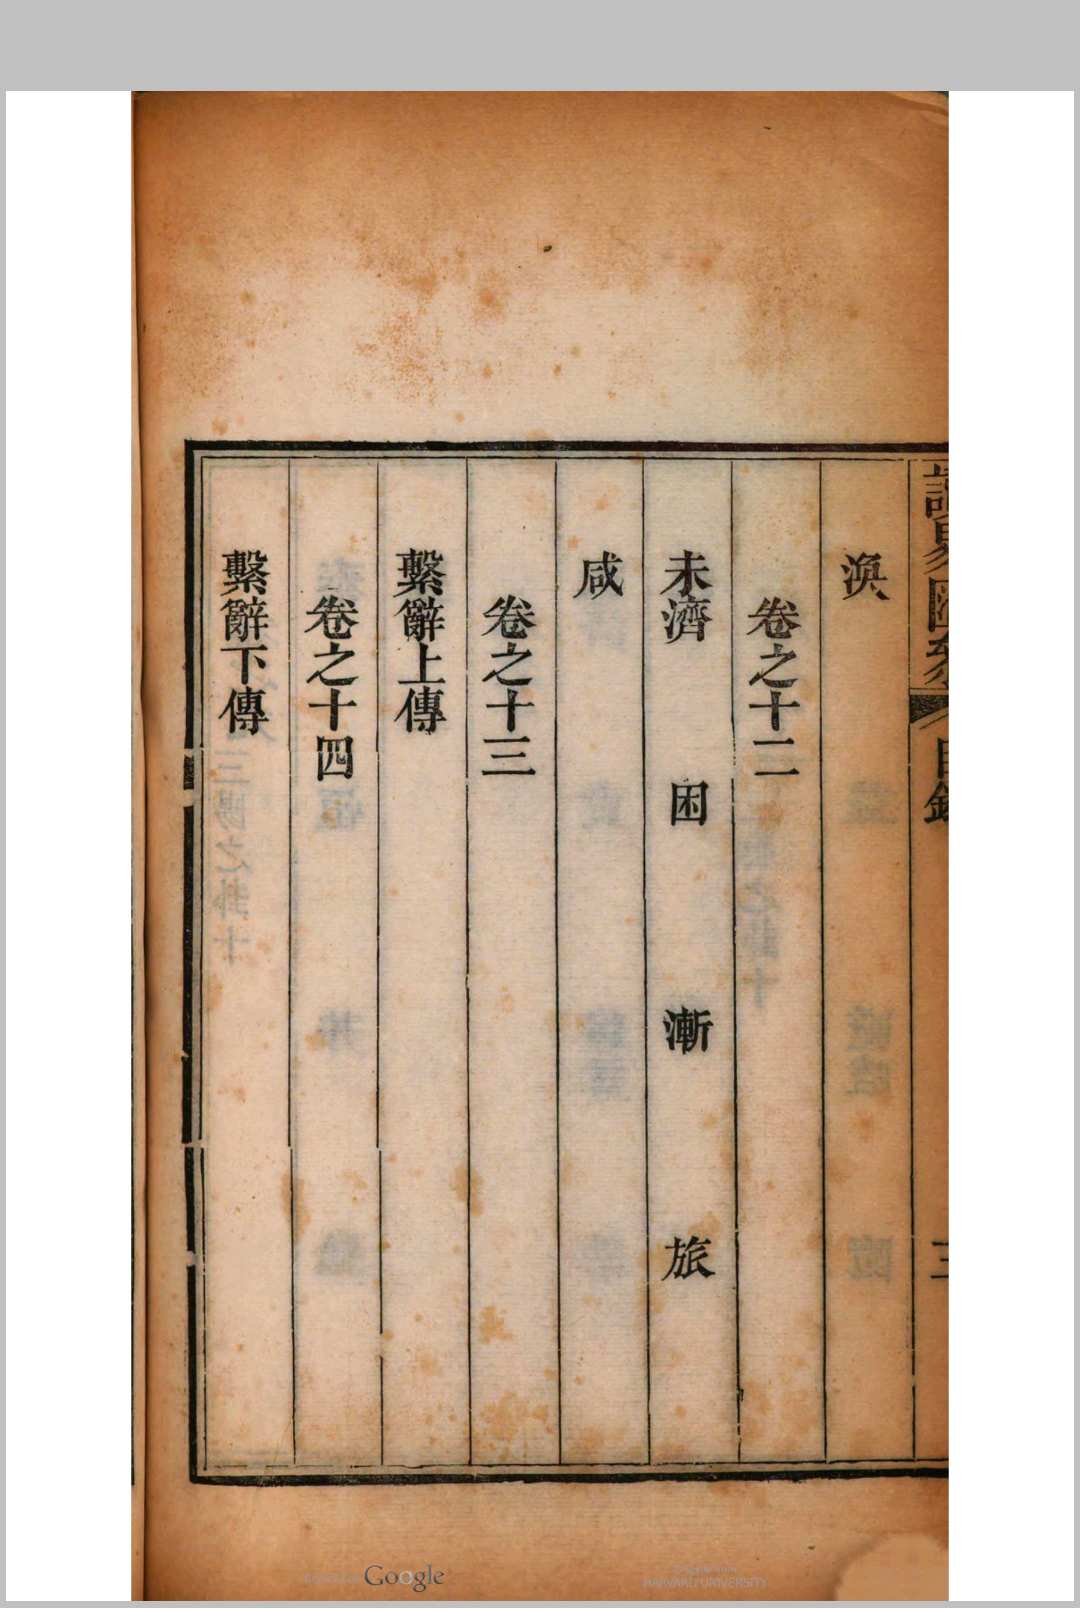 讀易匯參 目錄 三
渙
卷之十二
未濟 困 漸 旅
咸
卷之十三
繫辭上傳
卷之十四
繫辭下傳
Google
HARVARD UNIVERSITY